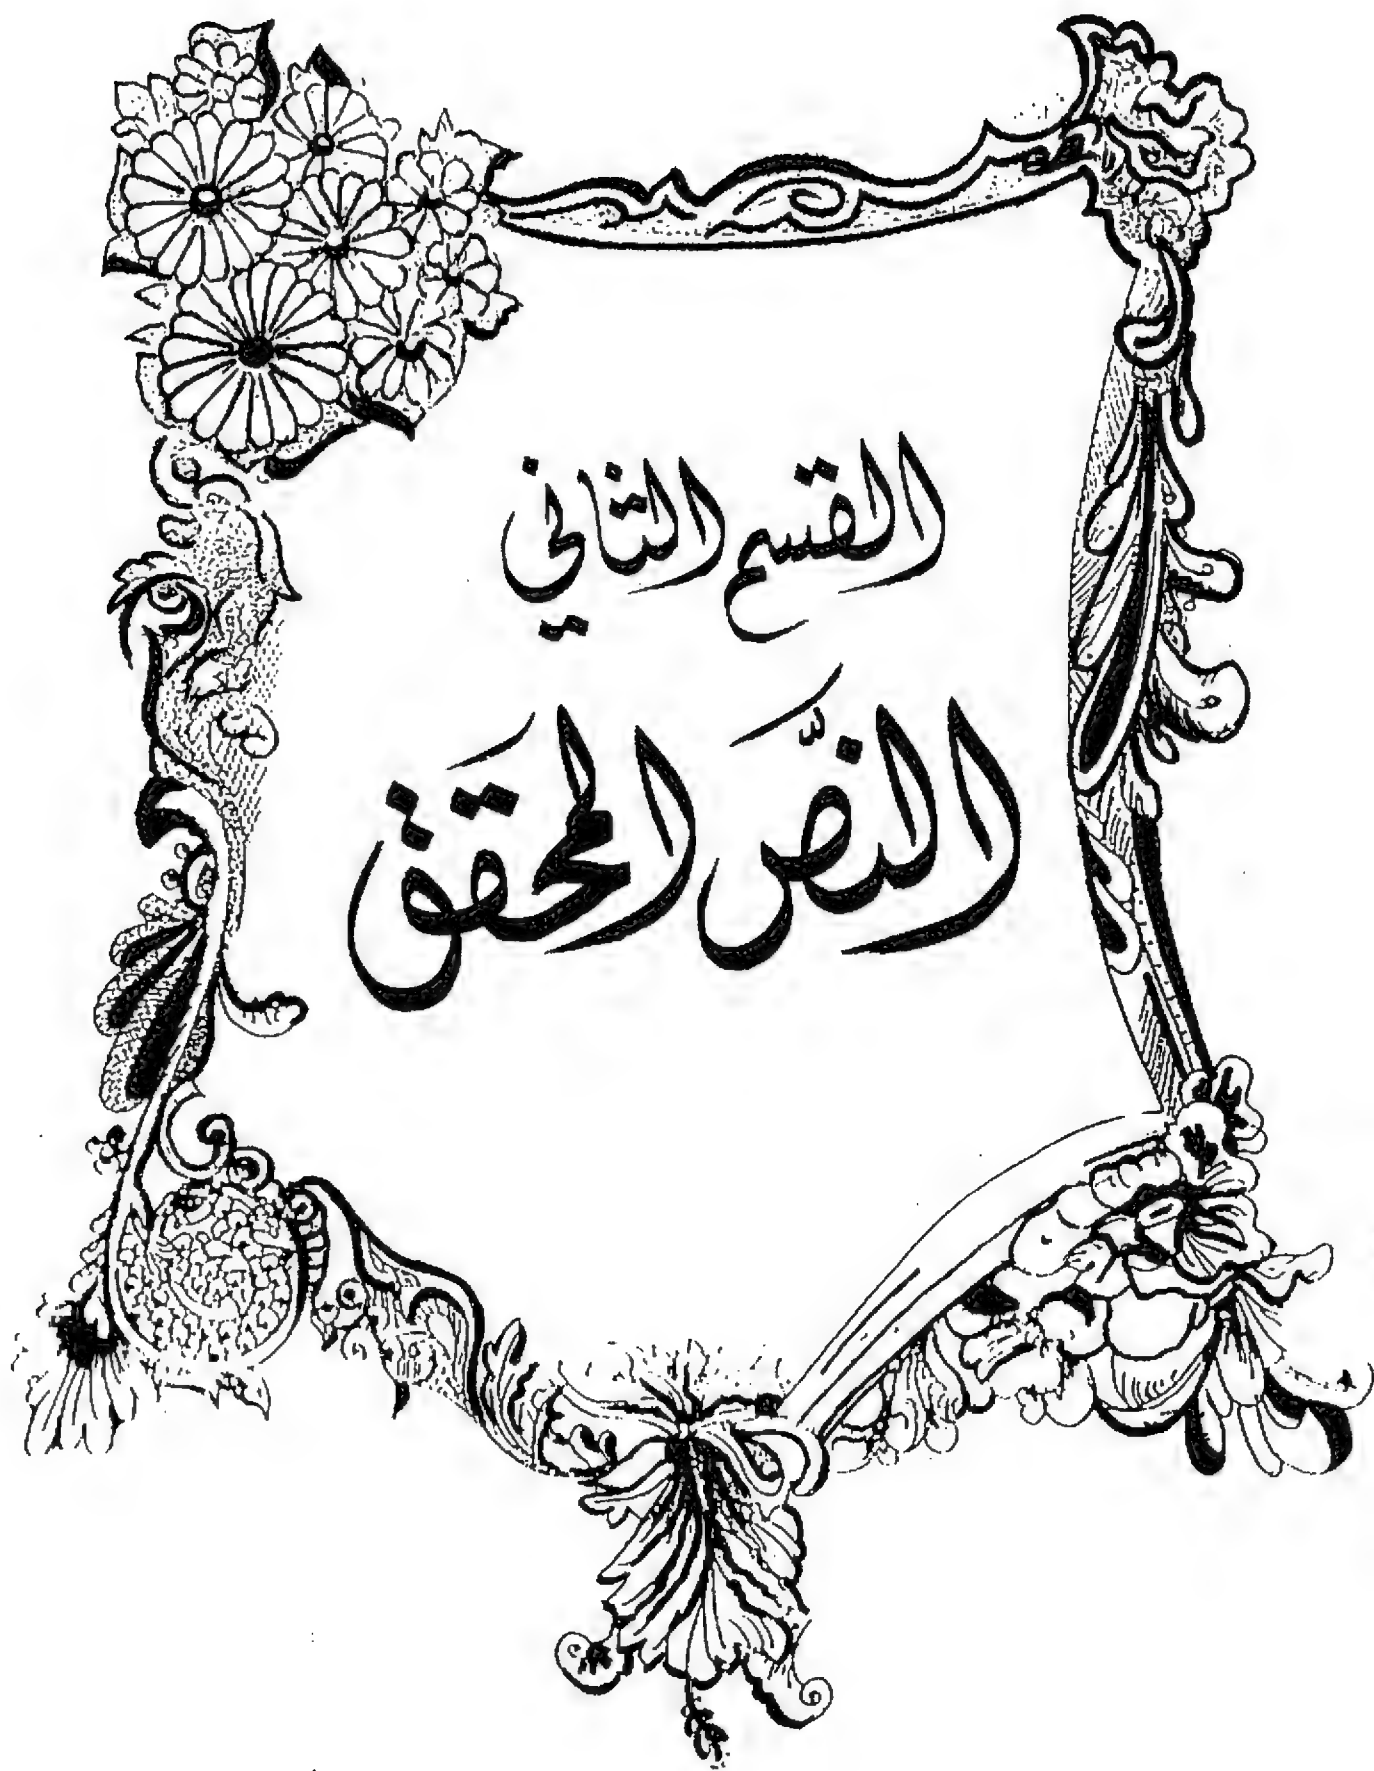 القسم الثاني
النصّ المحقق